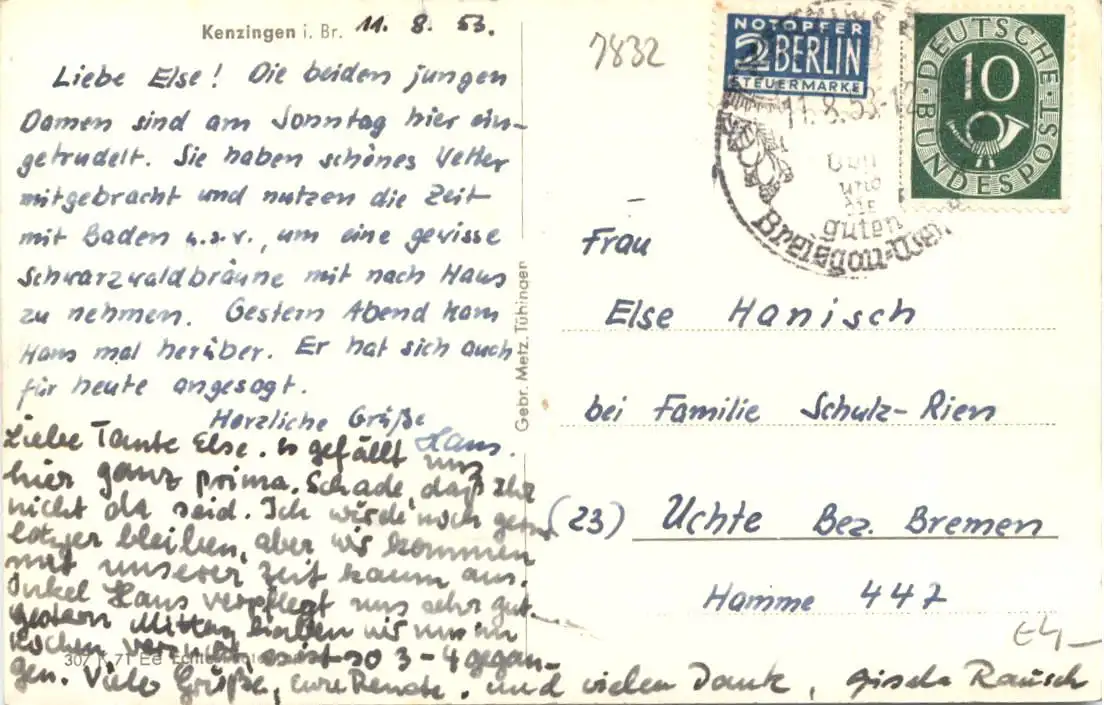 Kenzingen i. Br. 11. 8. 53.
Liebe Else! Die beiden jungen
Damen sind am Sonntag hier ein-
getrudelt. Sie haben schönes Wetter
mitgebracht und nutzen die Zeit
mit Baden u.s.w., um eine gewisse
Schwarzwaldbräune mit nach Haus
zu nehmen. Gestern Abend kam
Hans mal herüber. Er hat sich auch
für heute angesagt.
Herzliche Grüße
Hans.
Liebe Tante Else. Es gefällt uns
hier ganz prima. Schade, daß Ihr
nicht da seid. Ich würde noch gern
länger bleiben, aber wir kommen
mit unserer Zeit kaum aus.
Onkel Hans verpflegt uns sehr gut.
Gestern Mittag haben wir uns im
Kochen versucht, es ist so 3-4 gegan-
gen. Viele Grüße, eure Renate. und vielen Dank, Gisela Rausch
307 71 Ee
Gebr. Metz, Tübingen
7832
NOTOPFER
2 BERLIN
STEUERMARKE
DEUTSCHE
BUNDESPOST
10
11.8.53-12
und
die
guten
Breisgau-
Frau
Else Hanisch
bei Familie Schulz-Rien
(23) Uchte Bez. Bremen
Hamme 447